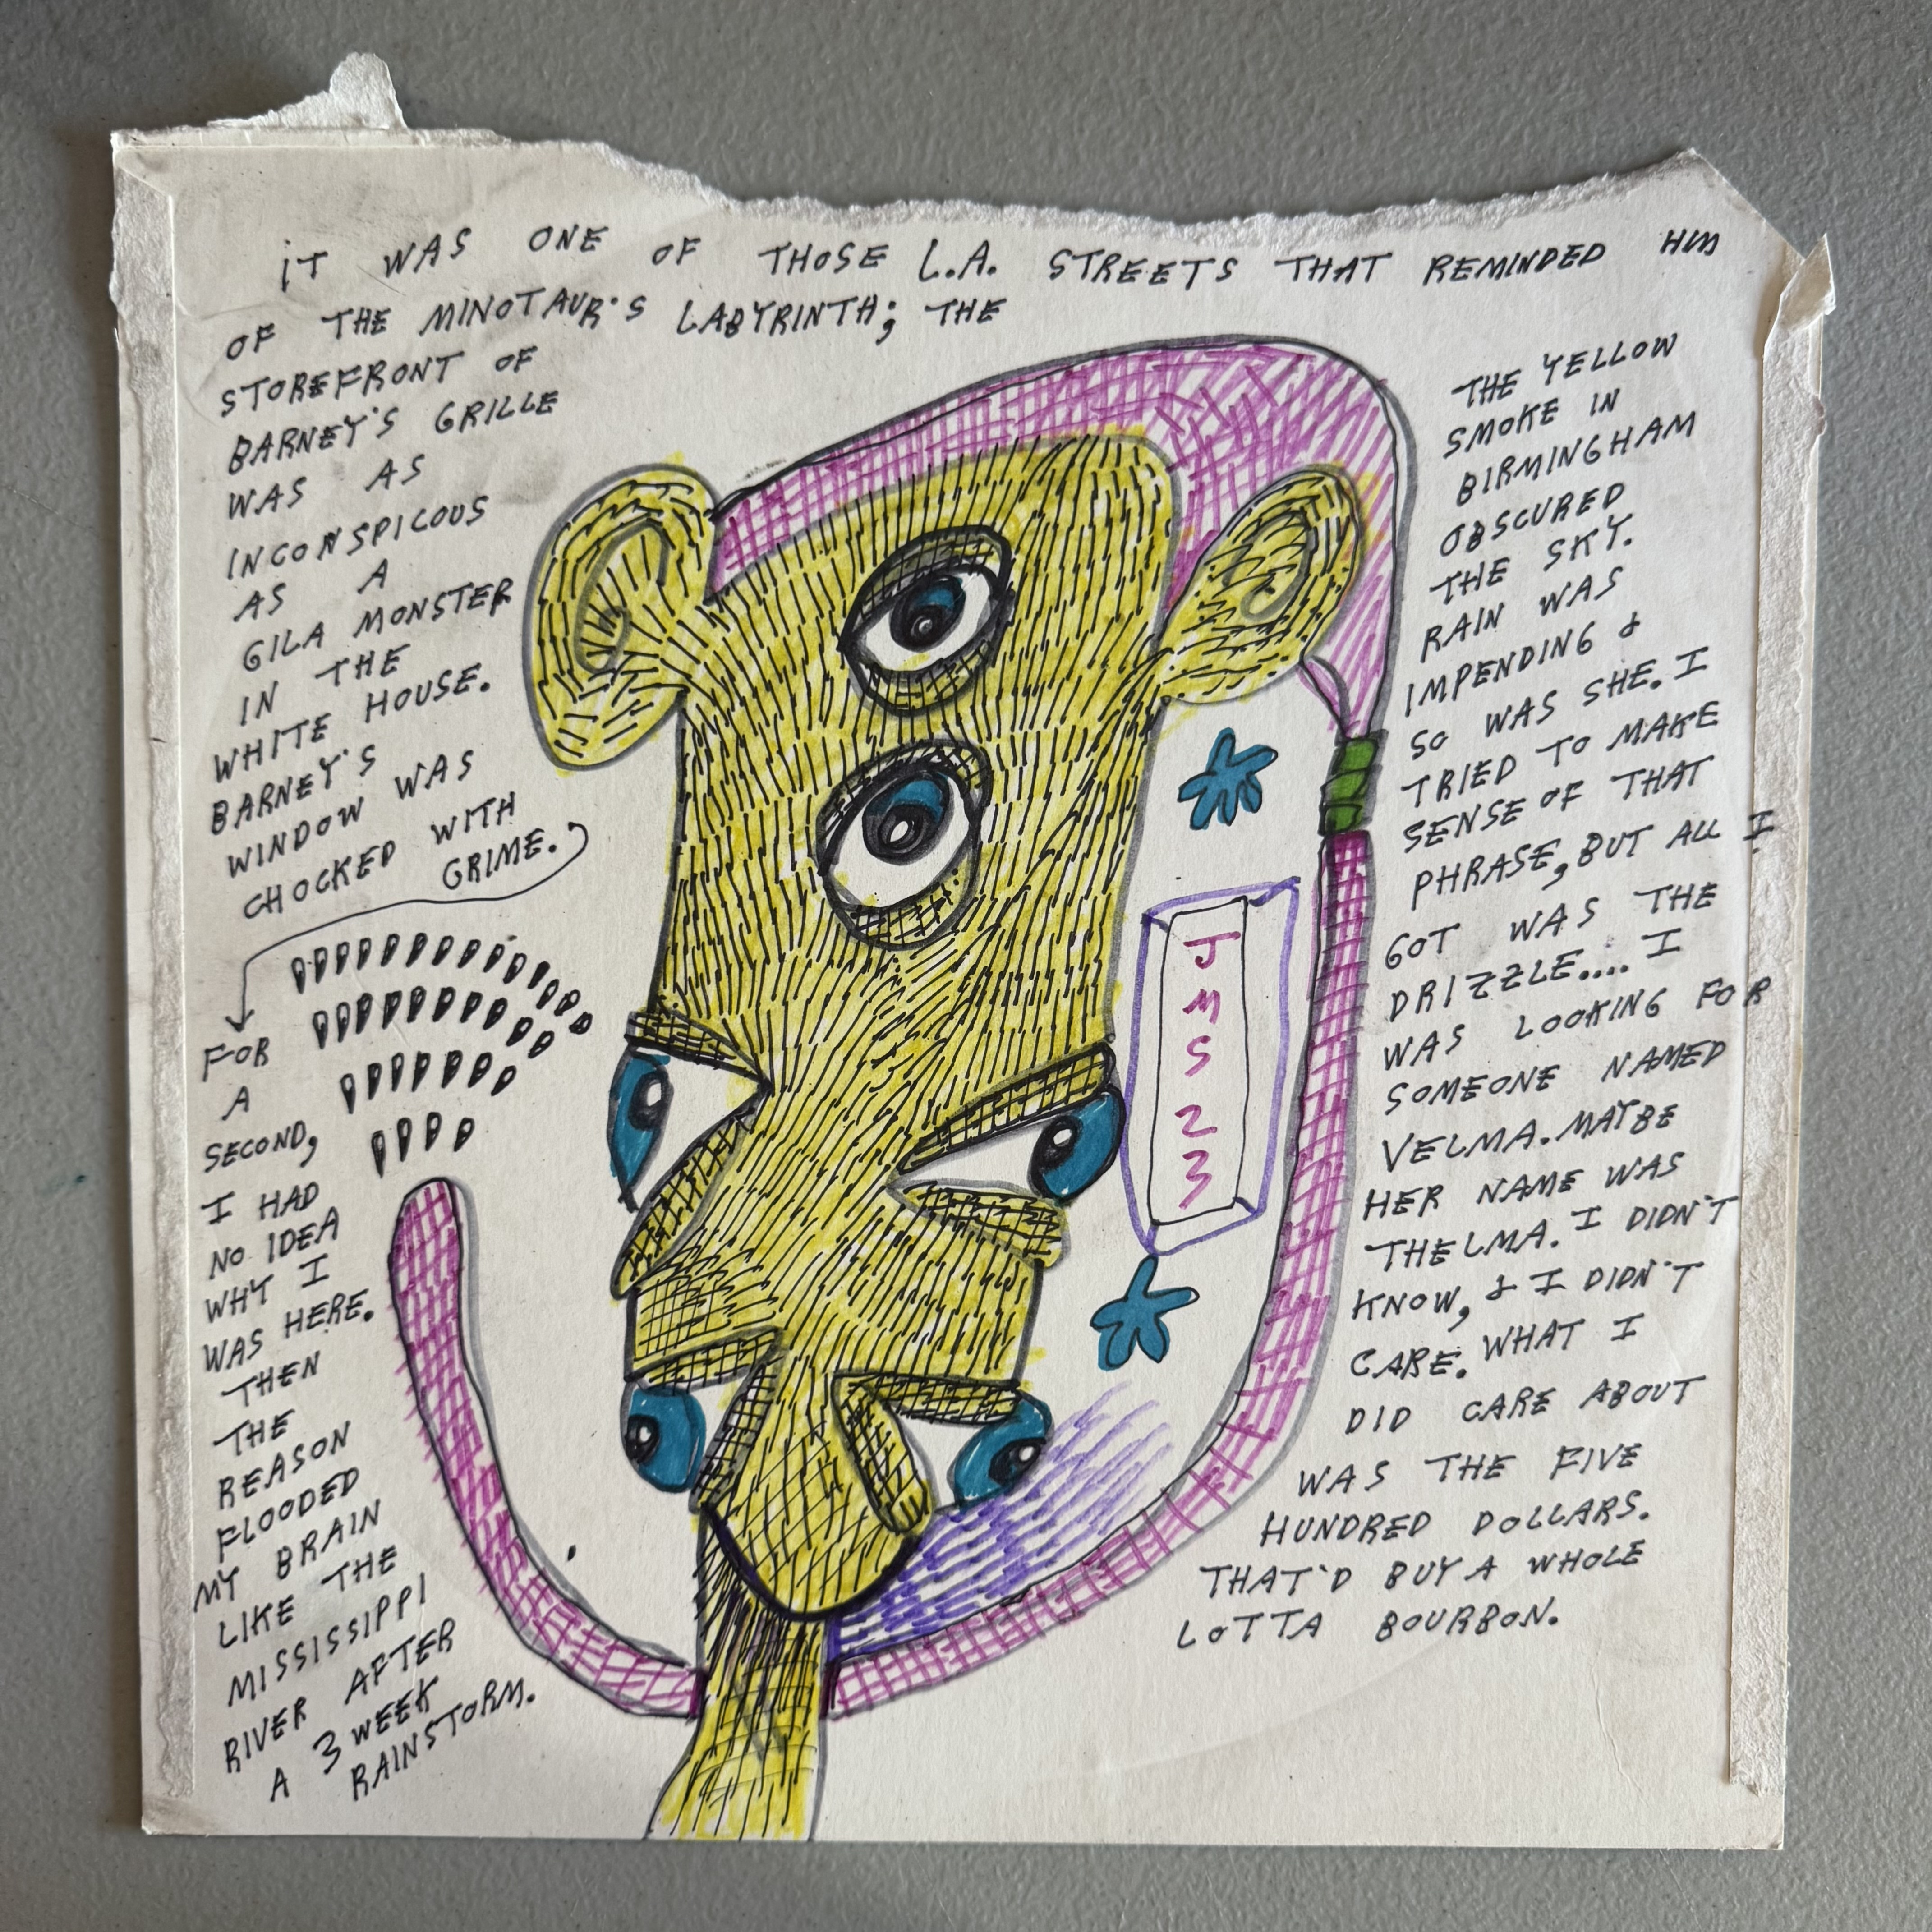 IT WAS ONE OF THOSE L.A. STREETS THAT REMINDED HIM
OF THE MINOTAUR'S LABYRINTH; THE
STOREFRONT OF
BARNEY'S GRILLE
WAS AS
INCONSPICOUS
AS A
GILA MONSTER
IN THE
WHITE HOUSE.
BARNEY'S
WINDOW WAS
CHOCKED WITH
GRIME.
FOR
A
SECOND,
I HAD
NO IDEA
WHY I
WAS HERE.
THEN
THE
REASON
FLOODED
MY BRAIN
LIKE THE
MISSISSIPPI
RIVER AFTER
A 3 WEEK
RAINSTORM.
THE YELLOW
SMOKE IN
BIRMINGHAM
OBSCURED
THE SKY.
RAIN WAS
IMPENDING &
SO WAS SHE. I
TRIED TO MAKE
SENSE OF THAT
PHRASE, BUT ALL I
GOT WAS THE
DRIZZLE.... I
WAS LOOKING FOR
SOMEONE NAMED
VELMA. MAYBE
HER NAME WAS
THELMA. I DIDN'T
KNOW, & I DIDN'T
CARE. WHAT I
DID CARE ABOUT
WAS THE FIVE
HUNDRED DOLLARS.
THAT'D BUY A WHOLE
LOTTA BOURBON.
J
M
S
2
3